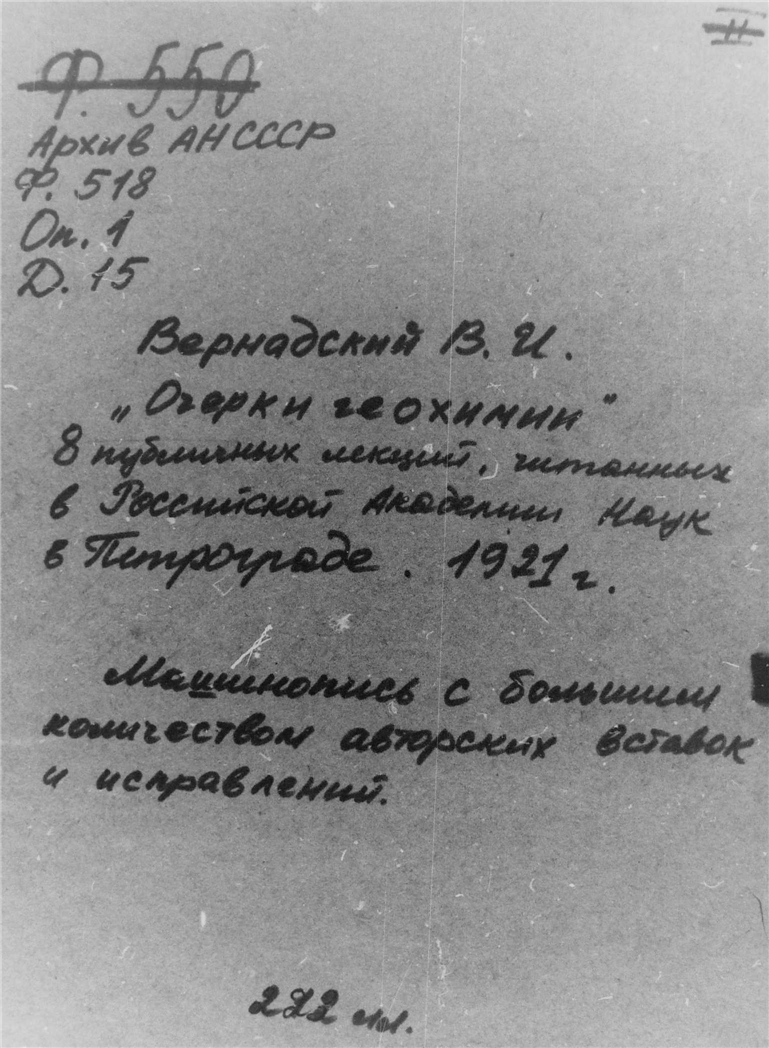 II
Ф. 550
Архив АН СССР
Ф. 518
Оп. 1
Д. 15
Вернадский В. И.
„Очерки геохимии"
8 публичных лекций, читанных
в Российской Академии Наук
в Петрограде. 1921 г.
Машинопись с большим
количеством авторских вставок
и исправлений.
222 лл.